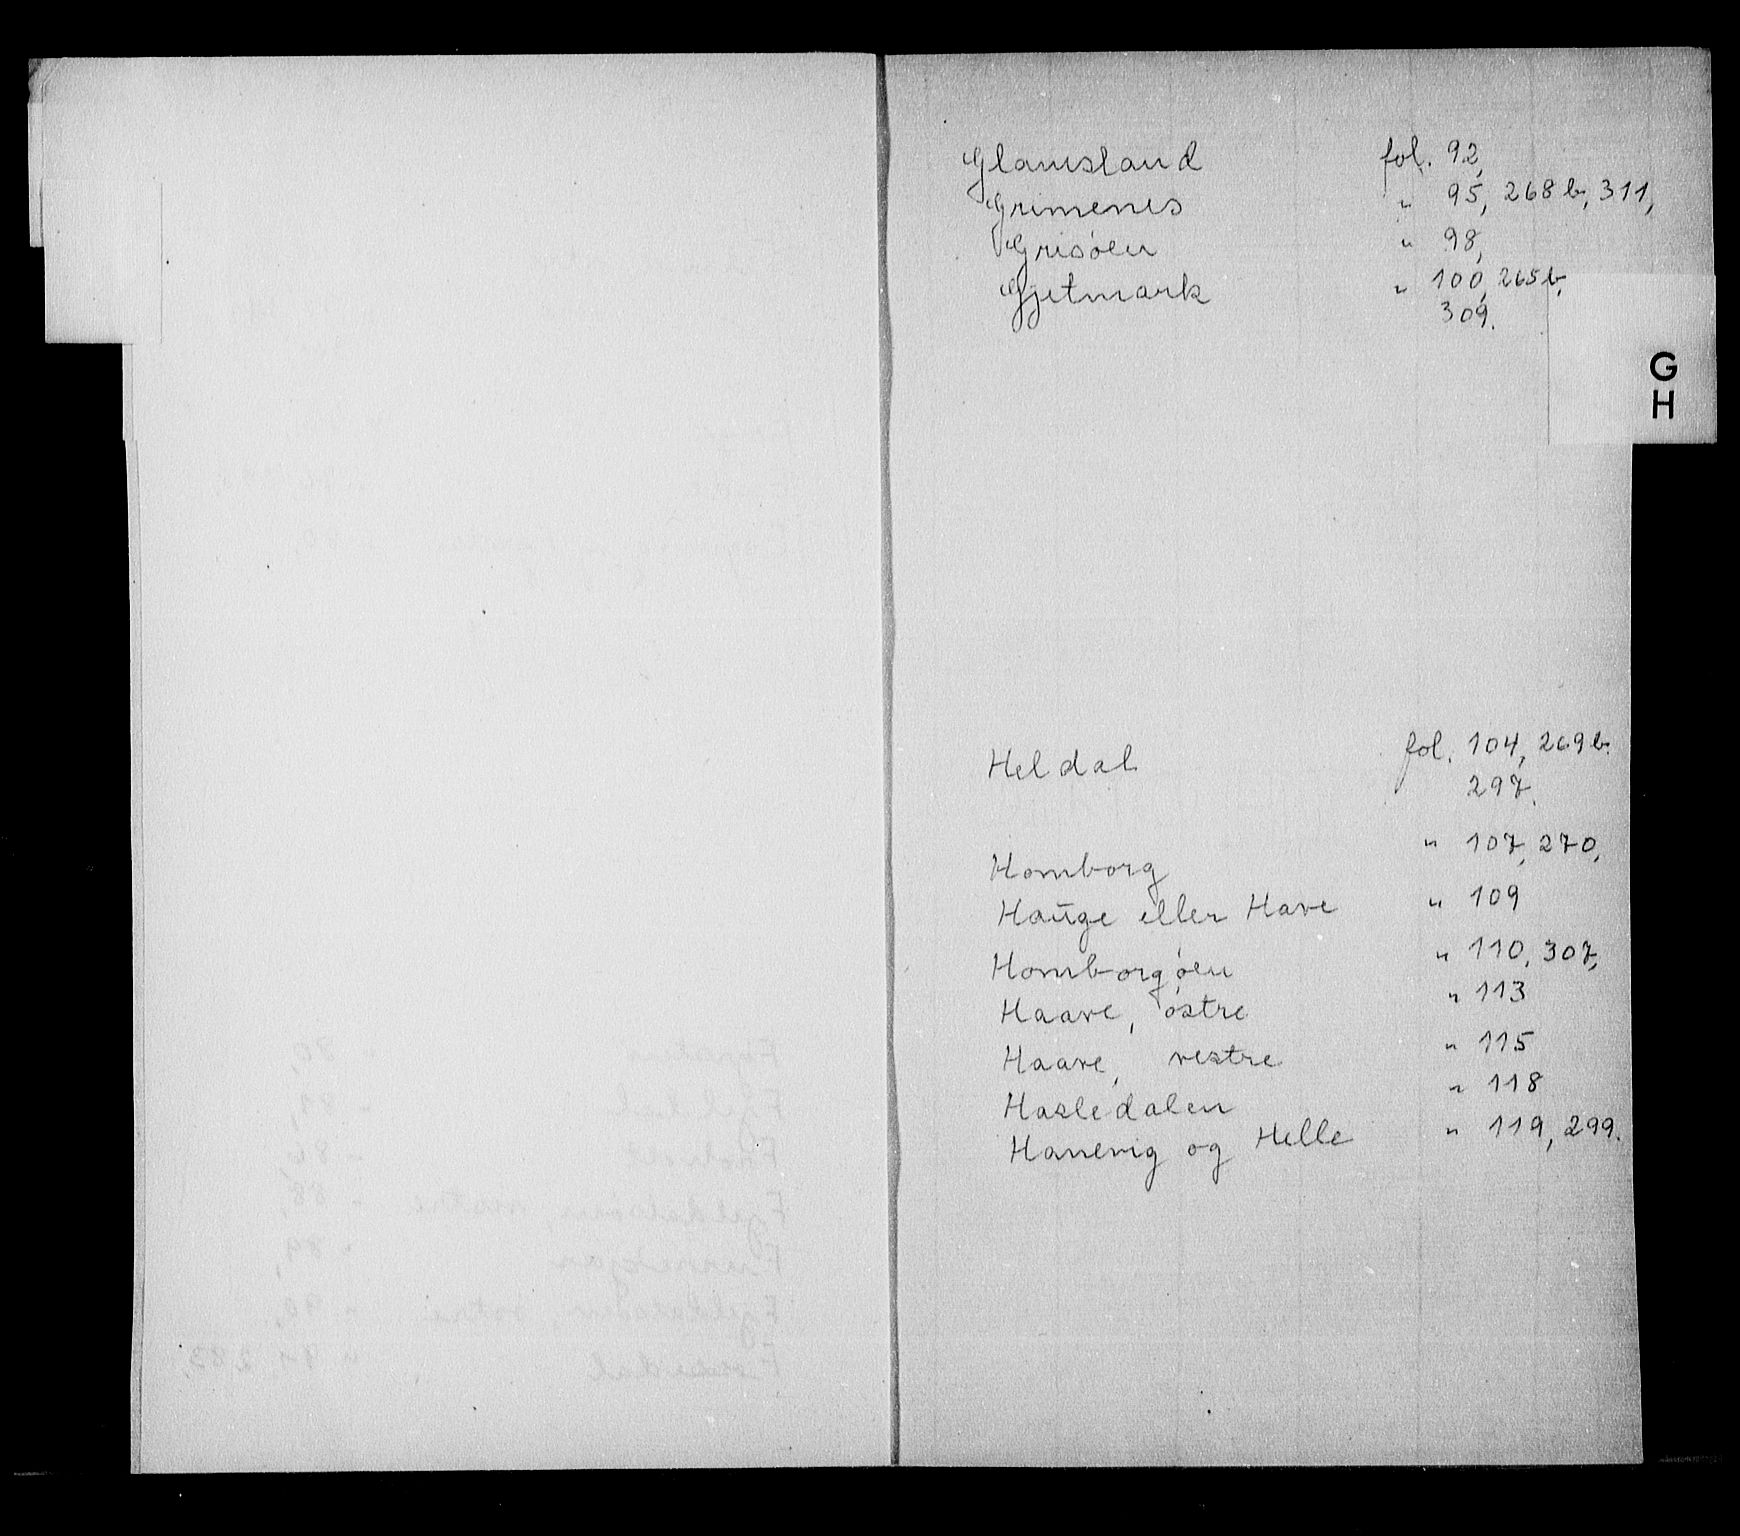 Glamsland fol. 92,
Grimenes " 95, 268 b, 311,
Grisøen " 98,
Gjetmark " 100, 265 b,
309.
G
H
Heldal fol. 104, 269 b.
297.
Homborg " 107, 270,
Hauge eller Have " 109
Homborgøen " 110, 307,
Haave, østre " 113
Haave, vestre " 115
Hasledalen " 118
Hanevig og Helle " 119, 299.